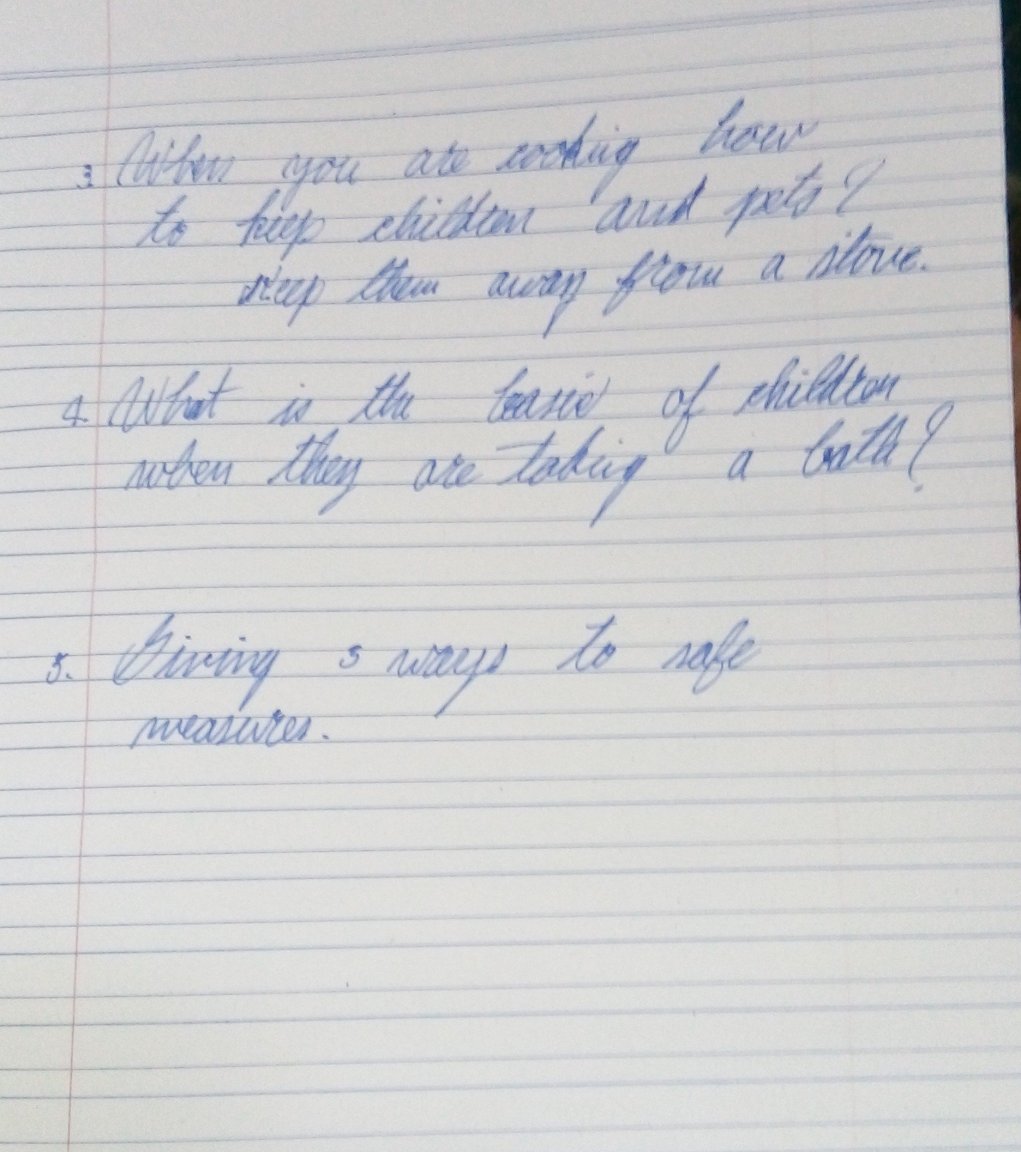 3. When you are cooking how
to keep children and pets?
Keep them away from a stove.
4. What is the basic of children
when they are taking a bath?
5. Giving 3 ways to safe
measures.